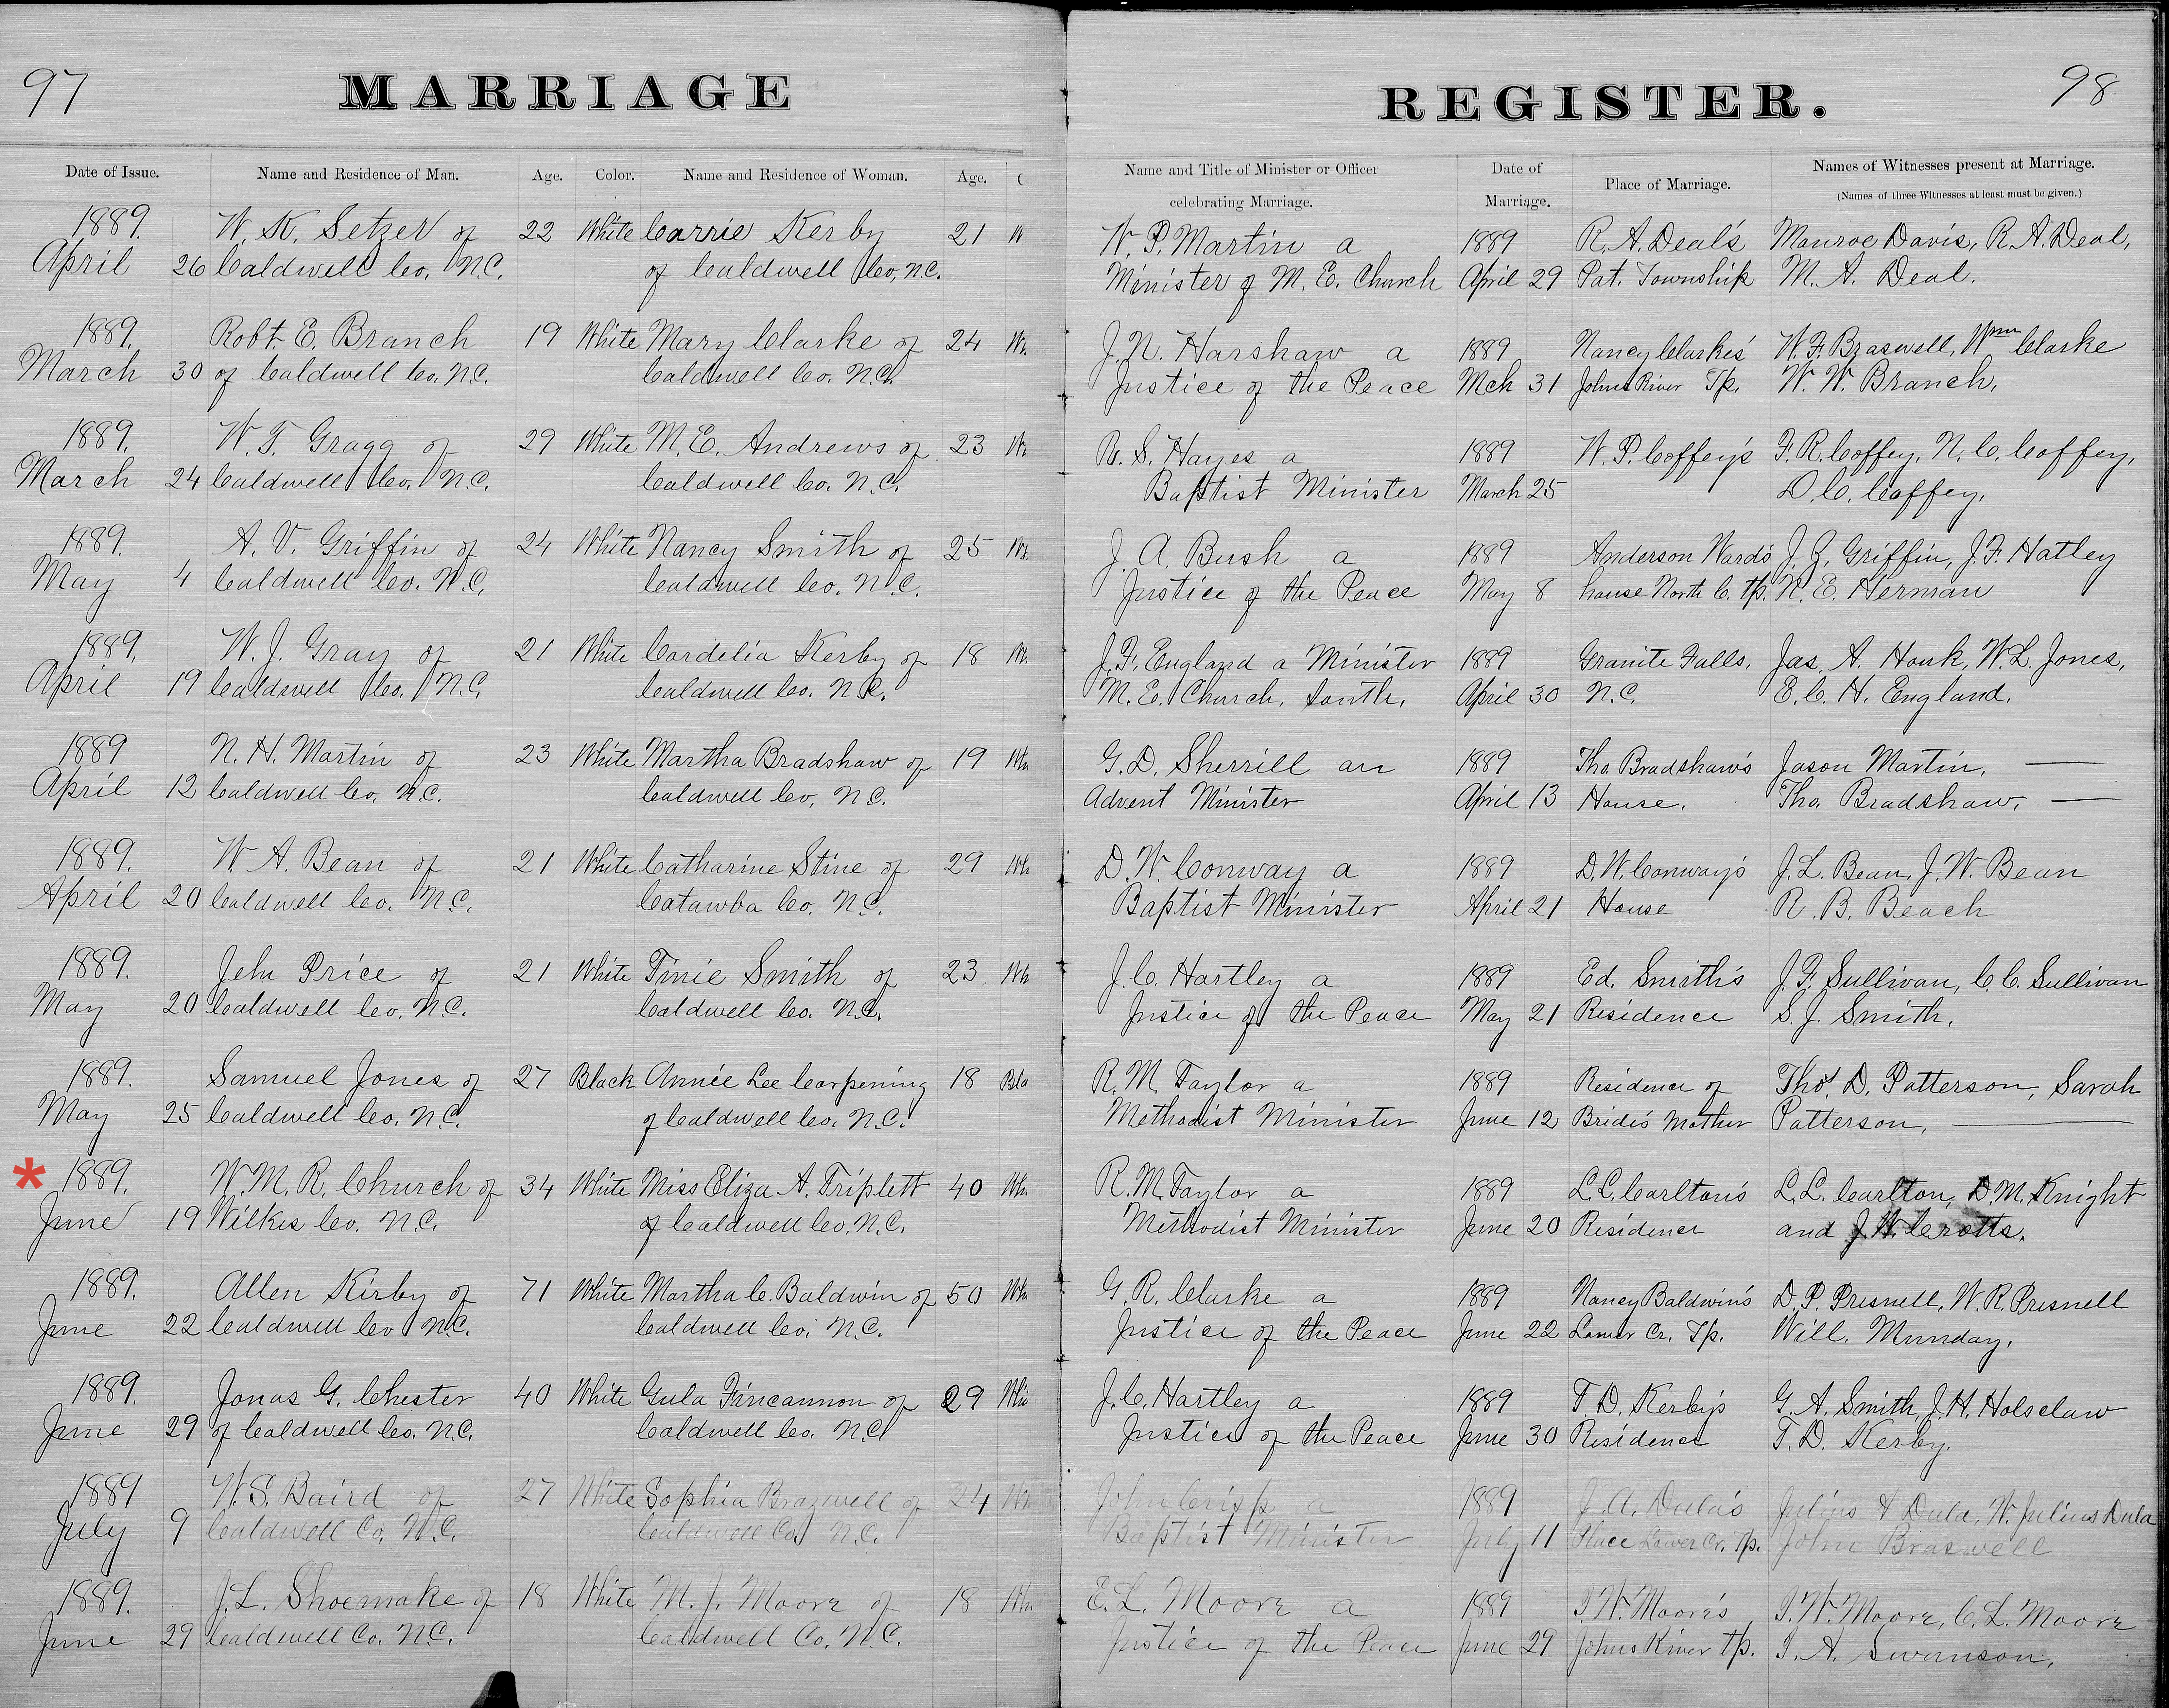 97 MARRIAGE REGISTER. 98
Date of Issue. Name and Residence of Man. Age. Color. Name and Residence of Woman. Age. Name and Title of Minister or Officer celebrating Marriage. Date of Marriage. Place of Marriage. Names of Witnesses present at Marriage.
(Names of three Witnesses at least must be given.)
1889. W. K. Setzer of 22 White Carrie Kerby 21 W W. P. Martin a 1889 R. A. Deal's Monroe Davis, R. A. Deal,
April 26 Caldwell Co. N.C. of Caldwell Co, N.C. Minister of M. E. Church April 29 Pat. Township M. A. Deal.
1889. Robt. E. Branch 19 White Mary Clarke of 24 Wh J. N. Harshaw a 1889 Nancy Clarkes' W. F. Braswell, Wm Clarke
March 30 of Caldwell Co. N.C. Caldwell Co. N.C. Justice of the Peace Mch 31 Johns River Tp. W. W. Branch.
1889. W. T. Gragg of 29 White M. E. Andrews of 23 Wh R. S. Hayes a 1889 W. P. Coffey's F. R. Coffey, N. C. Coffey,
March 24 Caldwell Co. N.C. Caldwell Co. N.C. Baptist Minister March 25 D. C. Coffey.
1889. A. V. Griffin of 24 White Nancy Smith of 25 Wh J. A. Bush a 1889 Anderson Ward's J. G. Griffin, J. F. Hatley
May 4 Caldwell Co. N.C. Caldwell Co. N.C. Justice of the Peace May 8 house North C. Tp. N. E. Herman
1889. W. J. Gray of 21 White Cordelia Kerby of 18 Wh J. F. England a Minister 1889 Granite Falls, Jas. A. Houk, W. L. Jones,
April 19 Caldwell Co. N.C. Caldwell Co. N.C. M. E. Church, South. April 30 N.C. E. C. H. England.
1889 N. H. Martin of 23 White Martha Bradshaw of 19 Wh G. D. Sherrill an 1889 Tho. Bradshaw's Jason Martin, —
April 12 Caldwell Co. N.C. Caldwell Co, N.C. Advent Minister April 13 House. Tho. Bradshaw, —
1889. W. A. Bean of 21 White Catharine Stine of 29 Wh D. W. Conway a 1889 D. W. Conway's J. L. Bean, J. W. Bean
April 20 Caldwell Co. N.C. Catawba Co. N.C. Baptist Minister April 21 House R. B. Beach
1889. Jehu Price of 21 White Tinie Smith of 23 Wh J. C. Hartley a 1889 Ed. Smith's J. F. Sullivan, C. C. Sullivan
May 20 Caldwell Co. N.C. Caldwell Co. N.C. Justice of the Peace May 21 Residence S. J. Smith.
1889. Samuel Jones of 27 Black Annie Lee Corpening 18 Bla R. M. Taylor a 1889 Residence of Thos. D. Patterson, Sarah
May 25 Caldwell Co. N.C. of Caldwell Co. N.C. Methodist Minister June 12 Bride's Mother Patterson, —
* 1889. W. M. R. Church of 34 White Miss Eliza A. Triplett 40 Wh R. M. Taylor a 1889 L. L. Carlton's L. L. Carlton, D. M. Knight
June 19 Wilkes Co. N.C. of Caldwell Co. N.C. Methodist Minister June 20 Residence and J. W. Crotts.
1889. Allen Kirby of 71 White Martha C. Baldwin of 50 Wh G. R. Clarke a 1889 Nancy Baldwin's D. P. Presnell, W. R. Presnell
June 22 Caldwell Co N.C. Caldwell Co. N.C. Justice of the Peace June 22 Lower Cr. Tp. Will. Munday.
1889. Jonas G. Chester 40 White Gula Fincannon of 29 Whi J. C. Hartley a 1889 T. D. Kerby's G. A. Smith, J. H. Holsclaw
June 29 of Caldwell Co. N.C. Caldwell Co. N.C. Justice of the Peace June 30 Residence T. D. Kerby.
1889 W. S. Baird of 27 White Sophia Brazwell of 24 Wh John Crisp a 1889 J. A. Dula's Julius A Dula, W. Julius Dula
July 9 Caldwell Co. N.C. Caldwell Co. N.C. Baptist Minister July 11 Place Lower Cr. Tp. John Braswell
1889. J. L. Shoemake of 18 White M. J. Moore of 18 Wh E. L. Moore a 1889 I. W. Moore's I. W. Moore, C. L. Moore
June 29 Caldwell Co. N.C. Caldwell Co. N.C. Justice of the Peace June 29 Johns River Tp. I. A. Swanson.